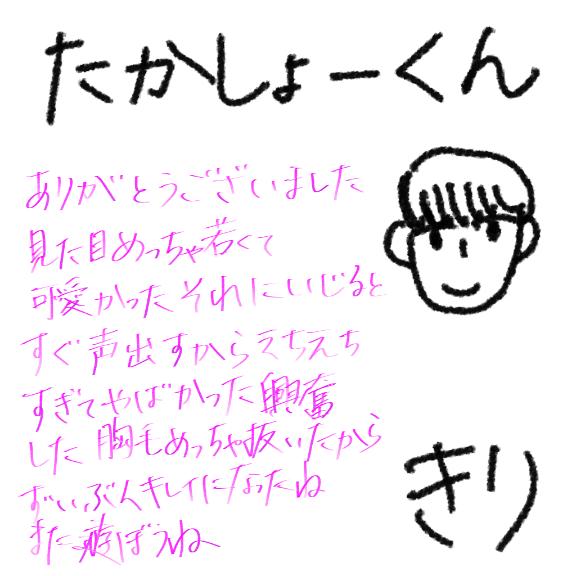 たかしょーくん
ありがとうございました
見た目めっちゃ若くて
可愛かったそれにいじると
すぐ声出すからえちえち
すぎてやばかった興奮
した胸毛めっちゃ抜いたから
ずいぶんキレイになったね
また遊ぼうね
きり